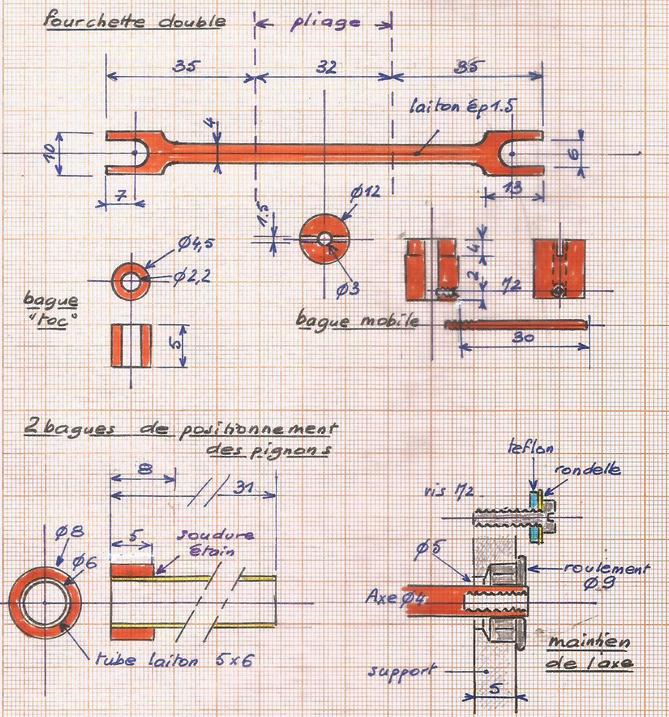 fourchette double
pliage
35
32
35
laiton ép 1.5
4
10
7
6
13
Ø12
1.5
Ø3
Ø4,5
Ø2,2
bague
"toc"
5
4
2
M2
bague mobile
30
2 bagues de positionnement
des pignons
8
31
5
soudure
étain
Ø8
Ø6
tube laiton 5x6
teflon
rondelle
vis M2
Ø5
Axe Ø4
roulement
Ø9
maintien
de l'axe
support
5